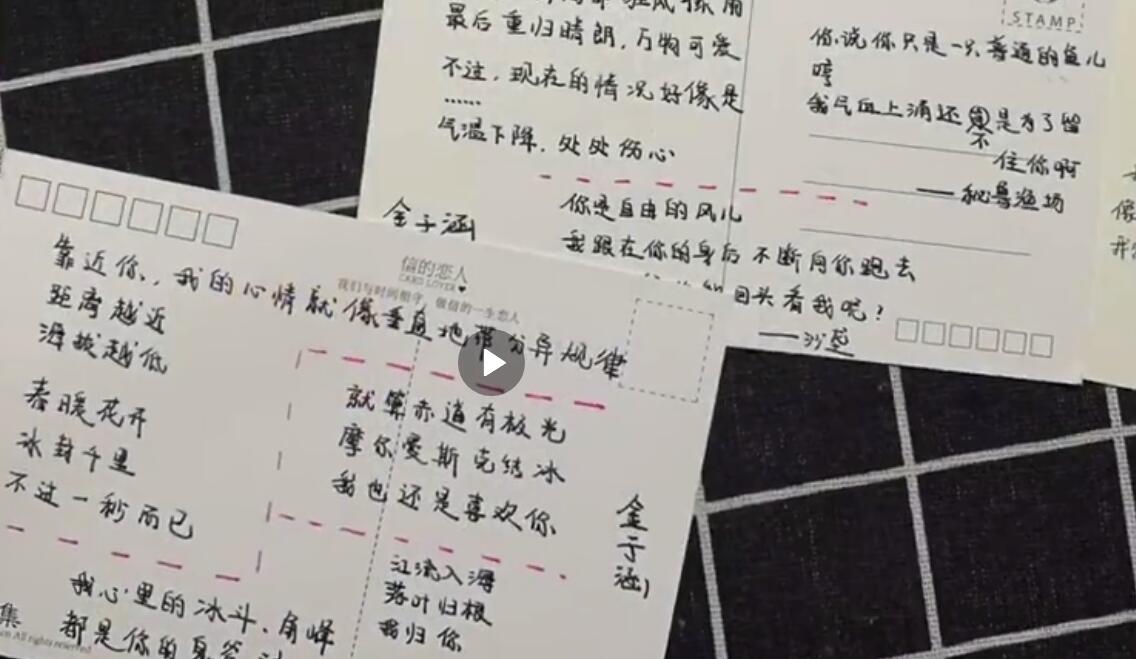 最后重归晴朗,万物可爱
不过,现在的情况好像是
……
气温下降,处处伤心
金子涵
STAMP
你说你只是一只普通的鱼儿
哼
我气血上涌还不是为了留
住你啊
——秘鲁渔场
你是自由的风儿
我跟在你的身后不断向你跑去
回头看我呢?
——沙丘
信的恋人
CARD LOVER
我们与时间相守,做信的一生恋人
靠近你,我的心情就像垂直地带分异规律
距离越近
海拔越低
春暖花开
冰封千里
不过一秒而已
就算赤道有极光
摩尔曼斯克结冰
我也还是喜欢你
金子涵
江流入海
落叶归根
我归你
我心里的冰斗、角峰
都是你的
集
All rights reserved
像